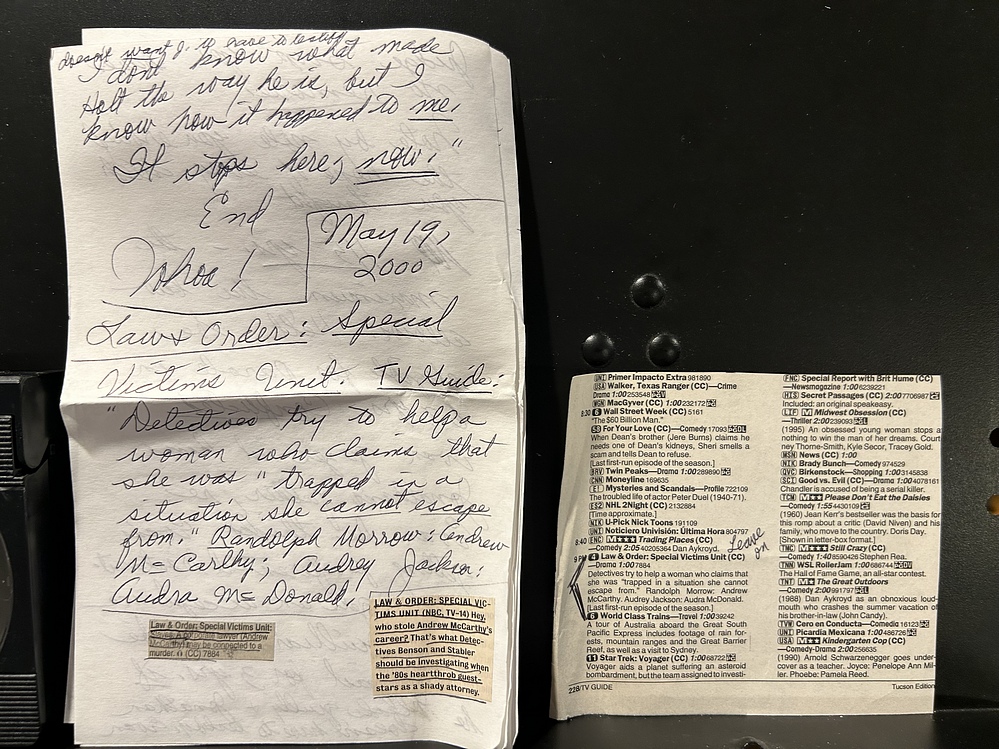 doesn't want J. to have to testify
I don't know what made
Holt the way he is, but I
know how it happened to me.
It stops here, now."
End
May 19,
2000
Whoa!
Law & Order: Special
Victims Unit. TV Guide:
"Detectives try to help a
woman who claims that
she was "trapped in a
situation she cannot escape
from." Randolph Morrow: Andrew
McCarthy; Audrey Jackson:
Audra McDonald.
Law & Order: Special Victims Unit:
lawyer (Andrew
McCarthy) may be connected to a
murder. (CC) 7884
LAW & ORDER: SPECIAL VIC-
TIMS UNIT (NBC, TV-14) Hey,
who stole Andrew McCarthy's
career? That's what Detec-
tives Benson and Stabler
should be investigating when
the '80s heartthrob guest-
stars as a shady attorney.
UNI Primer Impacto Extra 981890
USA Walker, Texas Ranger (CC)—Crime
Drama 1:00 253548
WGN MacGyver (CC) 1:00 232172
8:30 6 Wall Street Week (CC) 5161
"The $60 Billion Man."
58 For Your Love (CC)—Comedy 17093
When Dean's brother (Jere Burns) claims he
needs one of Dean's kidneys, Sheri smells a
scam and tells Dean to refuse.
[Last first-run episode of the season.]
BRV Twin Peaks—Drama 1:00 289890
CNN Moneyline 169635
E! Mysteries and Scandals—Profile 722109
The troubled life of actor Peter Duel (1940-71).
ES2 NHL 2Night (CC) 2132884
[Time approximate.]
NIK U-Pick Nick Toons 191109
UNI Noticiero Univisión: Última Hora 804797
8:40 ENC M★★★ Trading Places (CC)
—Comedy 2:05 40205364 Dan Aykroyd.
Leave
on
9 PM 4 Law & Order: Special Victims Unit (CC)
—Drama 1:00 7884
Detectives try to help a woman who claims that
she was "trapped in a situation that she cannot
escape from." Randolph Morrow: Andrew
McCarthy. Audrey Jackson: Audra McDonald.
[Last first-run episode of the season.]
6 World Class Trains—Travel 1:00 39242
A tour of Australia aboard the Great South
Pacific Express includes footage of rain for-
ests, mountain ranges and the Great Barrier
Reef, as well as a visit to Sydney.
11 Star Trek: Voyager (CC) 1:00 68722
Voyager aids a planet suffering an asteroid
bombardment, but the team assigned to investi-
228/TV GUIDE
FNC Special Report with Brit Hume (CC)
—Newsmagazine 1:00 6239221
HIS Secret Passages (CC) 2:00 7706987
Included: an original speakeasy.
LIF M Midwest Obsession (CC)
—Thriller 2:00 239093
(1995) An obsessed young woman stops at
nothing to win the man of her dreams. Court-
ney Thorne-Smith, Kyle Secor, Tracey Gold.
MSN News (CC) 1:00
NIK Brady Bunch—Comedy 974529
QVC Birkenstock—Shopping 1:00 3145838
SCI Good vs. Evil (CC)—Drama 1:00 4078161
Chandler is accused of being a serial killer.
TCM M★★★ Please Don't Eat the Daisies
—Comedy 1:55 4430109
(1960) Jean Kerr's bestseller was the basis for
this romp about a critic (David Niven) and his
family, who move to the country. Doris Day.
[Shown in letter-box format.]
TMC M★★★★ Still Crazy (CC)
—Comedy 1:40 8590426 Stephen Rea.
TNN WSL RollerJam 1:00 686744
The Hall of Fame Game, an all-star contest.
TNT M★ The Great Outdoors
—Comedy 2:00 991797
(1988) Dan Aykroyd as an obnoxious loud-
mouth who crashes the summer vacation of
his brother-in-law (John Candy).
TVM Cero en Conducta—Comedia 16123
UNI Picardia Mexicana 1:00 486726
USA M★★ Kindergarten Cop (CC)
—Comedy-Drama 2:00 256635
(1990) Arnold Schwarzenegger goes under-
cover as a teacher. Joyce: Penelope Ann Mil-
ler. Phoebe: Pamela Reed.
Tucson Edition